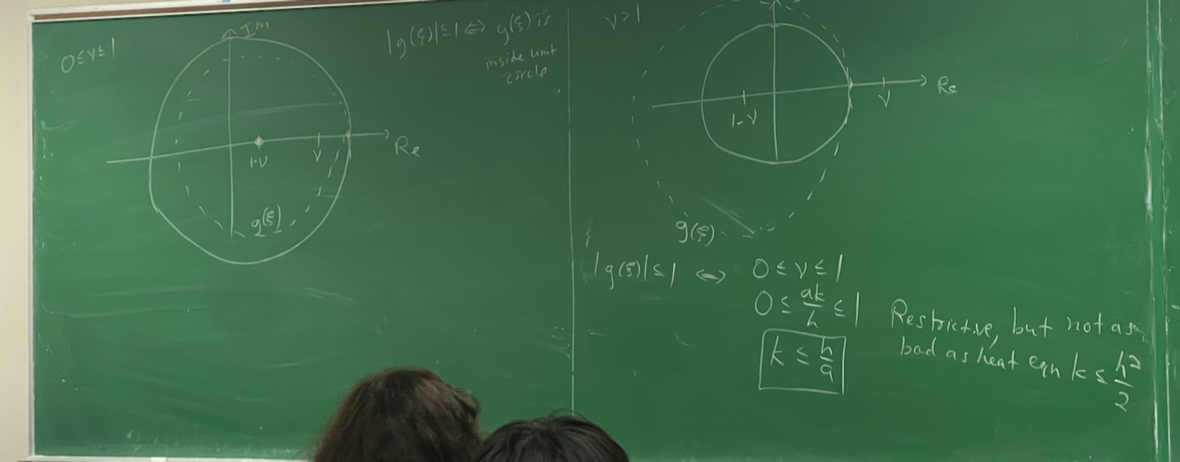 0 ≤ ν ≤ 1
Im
Re
1-ν
ν
g(ξ)
|g(ξ)| ≤ 1 ⇔ g(ξ) is
inside unit
circle
ν > 1
Re
1-ν
ν
g(ξ)
|g(ξ)| ≤ 1 ⇔ 0 ≤ ν ≤ 1
0 ≤ ak/h ≤ 1
k ≤ h/a
Restrictive, but not as
bad as heat eqn k ≤ h²/2